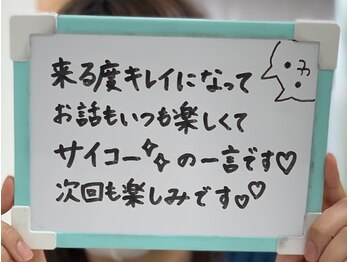 来る度キレイになって
お話もいつも楽しくて
サイコー✨の一言です♡
次回も楽しみです♡♡